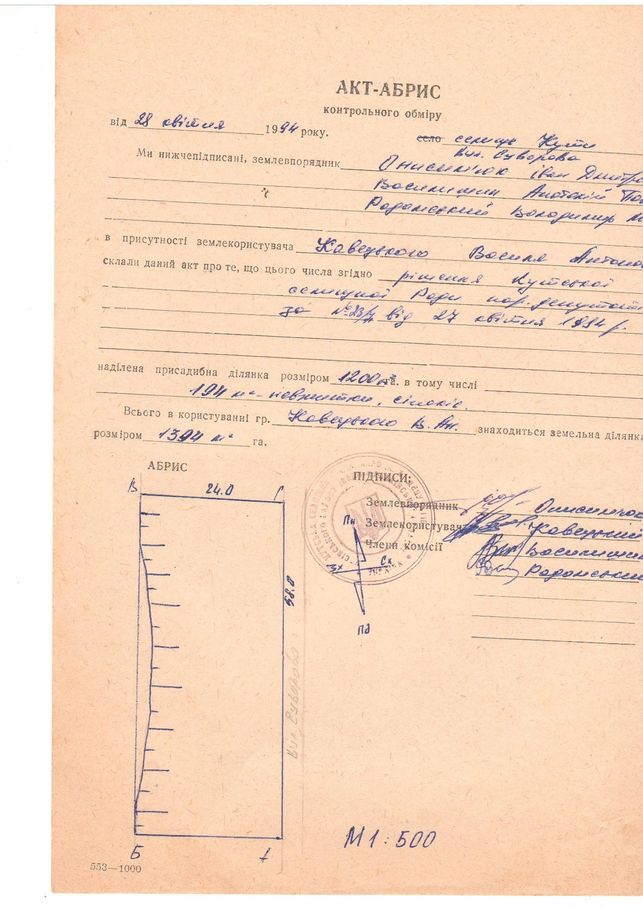 АКТ-АБРИС
контрольного обміру
від 28 квітня 1994 року.
село селище Кути
вул. Суворова
Ми нижчепідписані, землевпорядник Онисимюю Іван Дмитро
Василишин Анатолій
Радомський Володимир
в присутності землекористувача Кавецького Василя Антоно
склали даний акт про те, що цього числа згідно рішення Кутської
селищної Ради нар. депутаті
за № 23/4 від 27 квітня 1994 р.
наділена присадибна ділянка розміром 1200 м² га. в тому числі
194 м²
Всього в користуванні гр. Кавецького В. Ан. знаходиться земельна ділянка
розміром 1394 м² га.
АБРИС
ПІДПИСИ:
Землевпорядник
Землекористувач Кавецький
Члени комісії Василишин
Радомський
В 24.0 С
58.0
вул. Суворова
Пн
Зх Сх
Пд
УКРАЇНА
Б А
М 1:500
553—1000